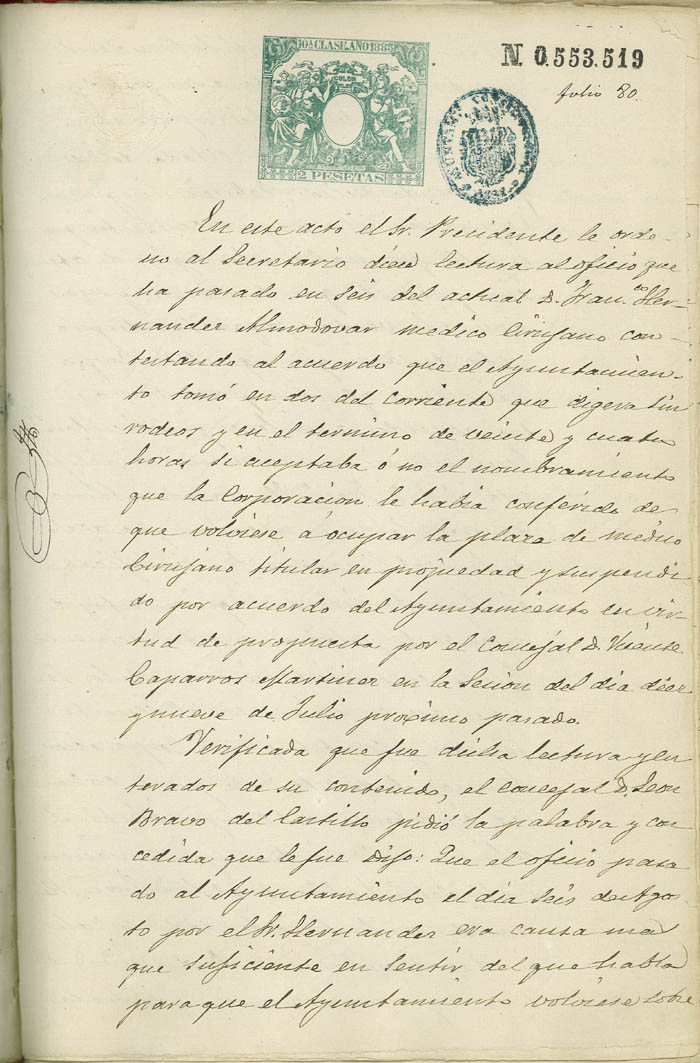 10ª CLASE. AÑO 1885
COLON
2 PESETAS
N. 0.553.519
folio 80.
En este acto el Sr. Precidente le ordo-
no al Secretario diese lectura al oficio que
ha pasado en seis del actual D. Fran.co Her-
nander Almodovar medico Cirujano con-
testando al acuerdo que el Ayuntamien-
to tomó en dos del corriente que digera sin
rodeos y en el termino de veinte y cuatro
horas si aceptaba ó no el nombramiento
que la Corporacion le habia conferido de
que volviese á ocupar la plaza de medico
Cirujano titular en propiedad y suspendi-
do por acuerdo del Ayuntamiento en vir-
tud de propuesta por el Concejal D. Vicente
Caparros Martinez en la Sesion del dia diez
y nueve de Julio proximo pasado.
Verificada que fue dicha lectura y en
terados de su contenido, el Concejal D. Leon
Bravo del Castillo pidió la palabra y con
cedida que le fue Dijo: Que el oficio pasa
do al Ayuntamiento el dia Seis de Agos-
to por el Sr. Hernander era causa mas
que suficiente en sentir del que habla
para que el Ayuntamiento volviese sobre